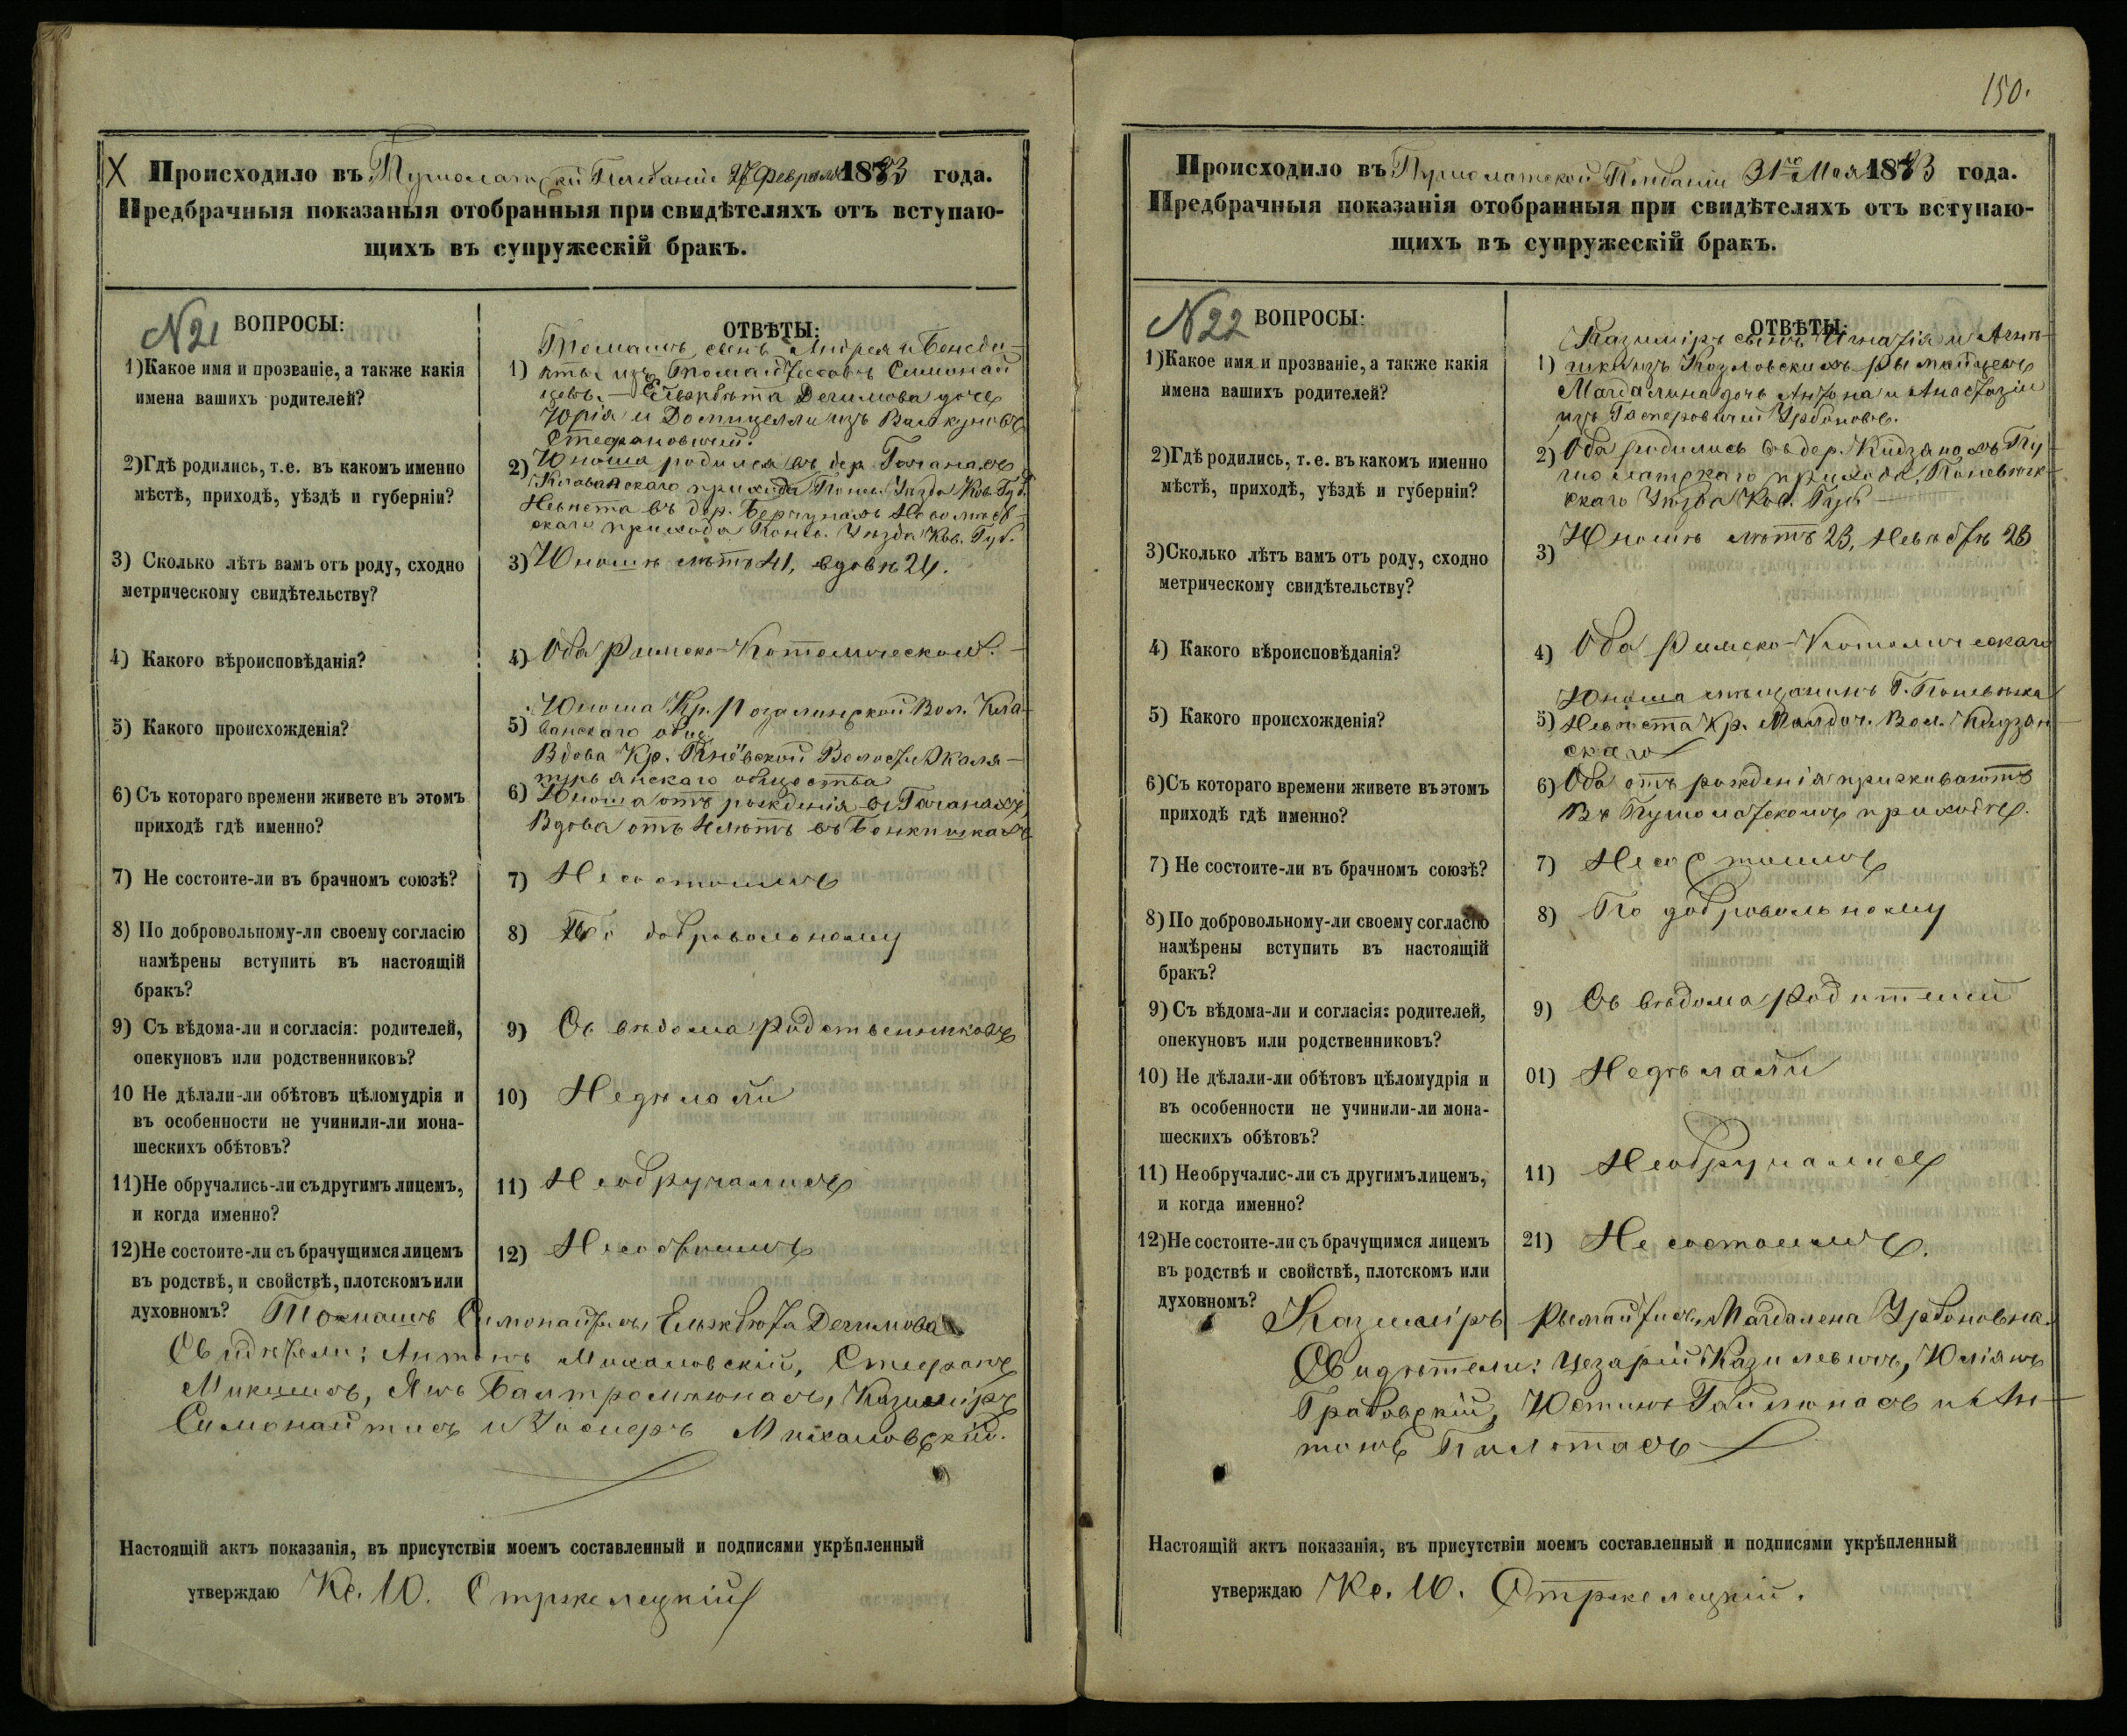 X Происходило въ Пушолат ской Плебаніи 27 Февраля 1883 года.
Предбрачныя показаныя отобранныя при свидѣтеляхъ отъ вступаю-
щихъ въ супружескій бракъ.
N 21 ВОПРОСЫ:
1) Какое имя и прозваніе, а также какія
имена вашихъ родителей?
2) Гдѣ родились, т. е. въ какомъ именно
мѣстѣ, приходѣ, уѣздѣ и губерніи?
3) Сколько лѣтъ вамъ отъ роду, сходно
метрическому свидѣтельству?
4) Какого вѣроисповѣданія?
5) Какого происхожденія?
6) Съ котораго времени живете въ этомъ
приходѣ гдѣ именно?
7) Не состоите-ли въ брачномъ союзѣ?
8) По добровольному-ли своему согласію
намѣрены вступить въ настоящій
бракъ?
9) Съ вѣдома-ли и согласія: родителей,
опекуновъ или родственниковъ?
10 Не дѣлали-ли обѣтовъ цѣломудрія и
въ особенности не учинили-ли мона-
шескихъ обѣтовъ?
11) Не обручались-ли съ другимъ лицемъ,
и когда именно?
12) Не состоите-ли съ брачущимся лицемъ
въ родствѣ, и свойствѣ, плотскомъ или
духовномъ?
ОТВѢТЫ:
Томашъ сынъ Андрея и Бенеди-
1) кты изъ Симонай
цевъ. — Ельжбѣта Дечимова дочь
Юрія и Домицелли изъ Вилкуновъ
Стефановичей.
2) Юноша родился въ дер. Гачанахъ
Клованскаго прихода Понев. Уѣзда Ков. Губ.
Невѣста въ дер. Берчунахъ
скаго прихода Понев. Уѣзда Ков. Губ.
3) Юношѣ лѣтъ 41, вдовѣ 24.
4) Оба Римско-Католическаго. —
Юноша Кр. Розалинской Вол. Кло-
5) ванскаго общ.
Вдова Кр. Волости
скаго общества
6) Юноша отъ рожденія въ Гачанахъ
Вдова отъ лѣтъ въ
7) Несостоимъ
8) По добровольному
9) Съ вѣдома родственниковъ
10) Недѣлали
11) Необручались
12) Несостоимъ
Томашъ Симонайтисъ, Ельжбюта Дечимова
Свидѣтели: Антонъ Михаловскій, Стефанъ
Микшисъ, Янъ Балтромеюнасъ, Казимиръ
Симонайтисъ и Михаловскій.
Настоящій актъ показанія, въ присутствіи моемъ составленный и подписями укрѣпленный
утверждаю Кс. Ю. Стржелецкій
150.
Происходило въ Пушолатской Плебаніи 31го Мая 1883 года.
Предбрачныя показанія отобранныя при свидѣтеляхъ отъ вступаю-
щихъ въ супружескій бракъ.
N 22 ВОПРОСЫ:
1) Какое имя и прозваніе, а также какія
имена вашихъ родителей?
2) Гдѣ родились, т. е. въ какомъ именно
мѣстѣ, приходѣ, уѣздѣ и губерніи?
3) Сколько лѣтъ вамъ отъ роду, сходно
метрическому свидѣтельству?
4) Какого вѣроисповѣданія?
5) Какого происхожденія?
6) Съ котораго времени живете въ этомъ
приходѣ гдѣ именно?
7) Не состоите-ли въ брачномъ союзѣ?
8) По добровольному-ли своему согласію
намѣрены вступить въ настоящій
бракъ?
9) Съ вѣдома-ли и согласія: родителей,
опекуновъ или родственниковъ?
10) Не дѣлали-ли обѣтовъ цѣломудрія и
въ особенности не учинили-ли мона-
шескихъ обѣтовъ?
11) Необручалис-ли съ другимъ лицемъ,
и когда именно?
12) Не состоите-ли съ брачущимся лицемъ
въ родствѣ и свойствѣ, плотскомъ или
духовномъ?
ОТВѢТЫ:
Казиміръ сынъ Игнатія и Агнѣ-
1) шки изъ Козловскихъ Рымайцевъ
Магдалина дочь Антона и Анастазіи
изъ Гасперовичей Урбоновъ.
2) Оба родились въ дер. Кидзанахъ Пу
шолатскаго прихода, Поневѣж-
скаго Уѣзда Ков. Губ. —
3) Юношѣ лѣтъ 23, Невѣстѣ 23
4) Оба Римско-Католическаго
Юноша мѣщанинъ Г. Поневѣжа
5) Невѣста Кр. Вол. Кидзан
скаго
6) Оба отъ рожденія проживаютъ
Въ Пушолатскомъ приходѣ.
7) Несостоимъ
8) По добровольному
9) Съ вѣдома родителей
01) Недѣлали
11) Необручались
21) Не состоимъ.
Казиміръ Рымайтисъ, Магдалена Урбоновна.
Свидѣтели: Цезарій Казилевичъ, Юліянъ
Грабовскій, Юстинъ Гайлюнасъ и Ан-
тонъ Пилотасъ
Настоящій актъ показанія, въ присутствіи моемъ составленный и подписями укрѣпленный
утверждаю Кс. Ю. Стржелецкій.